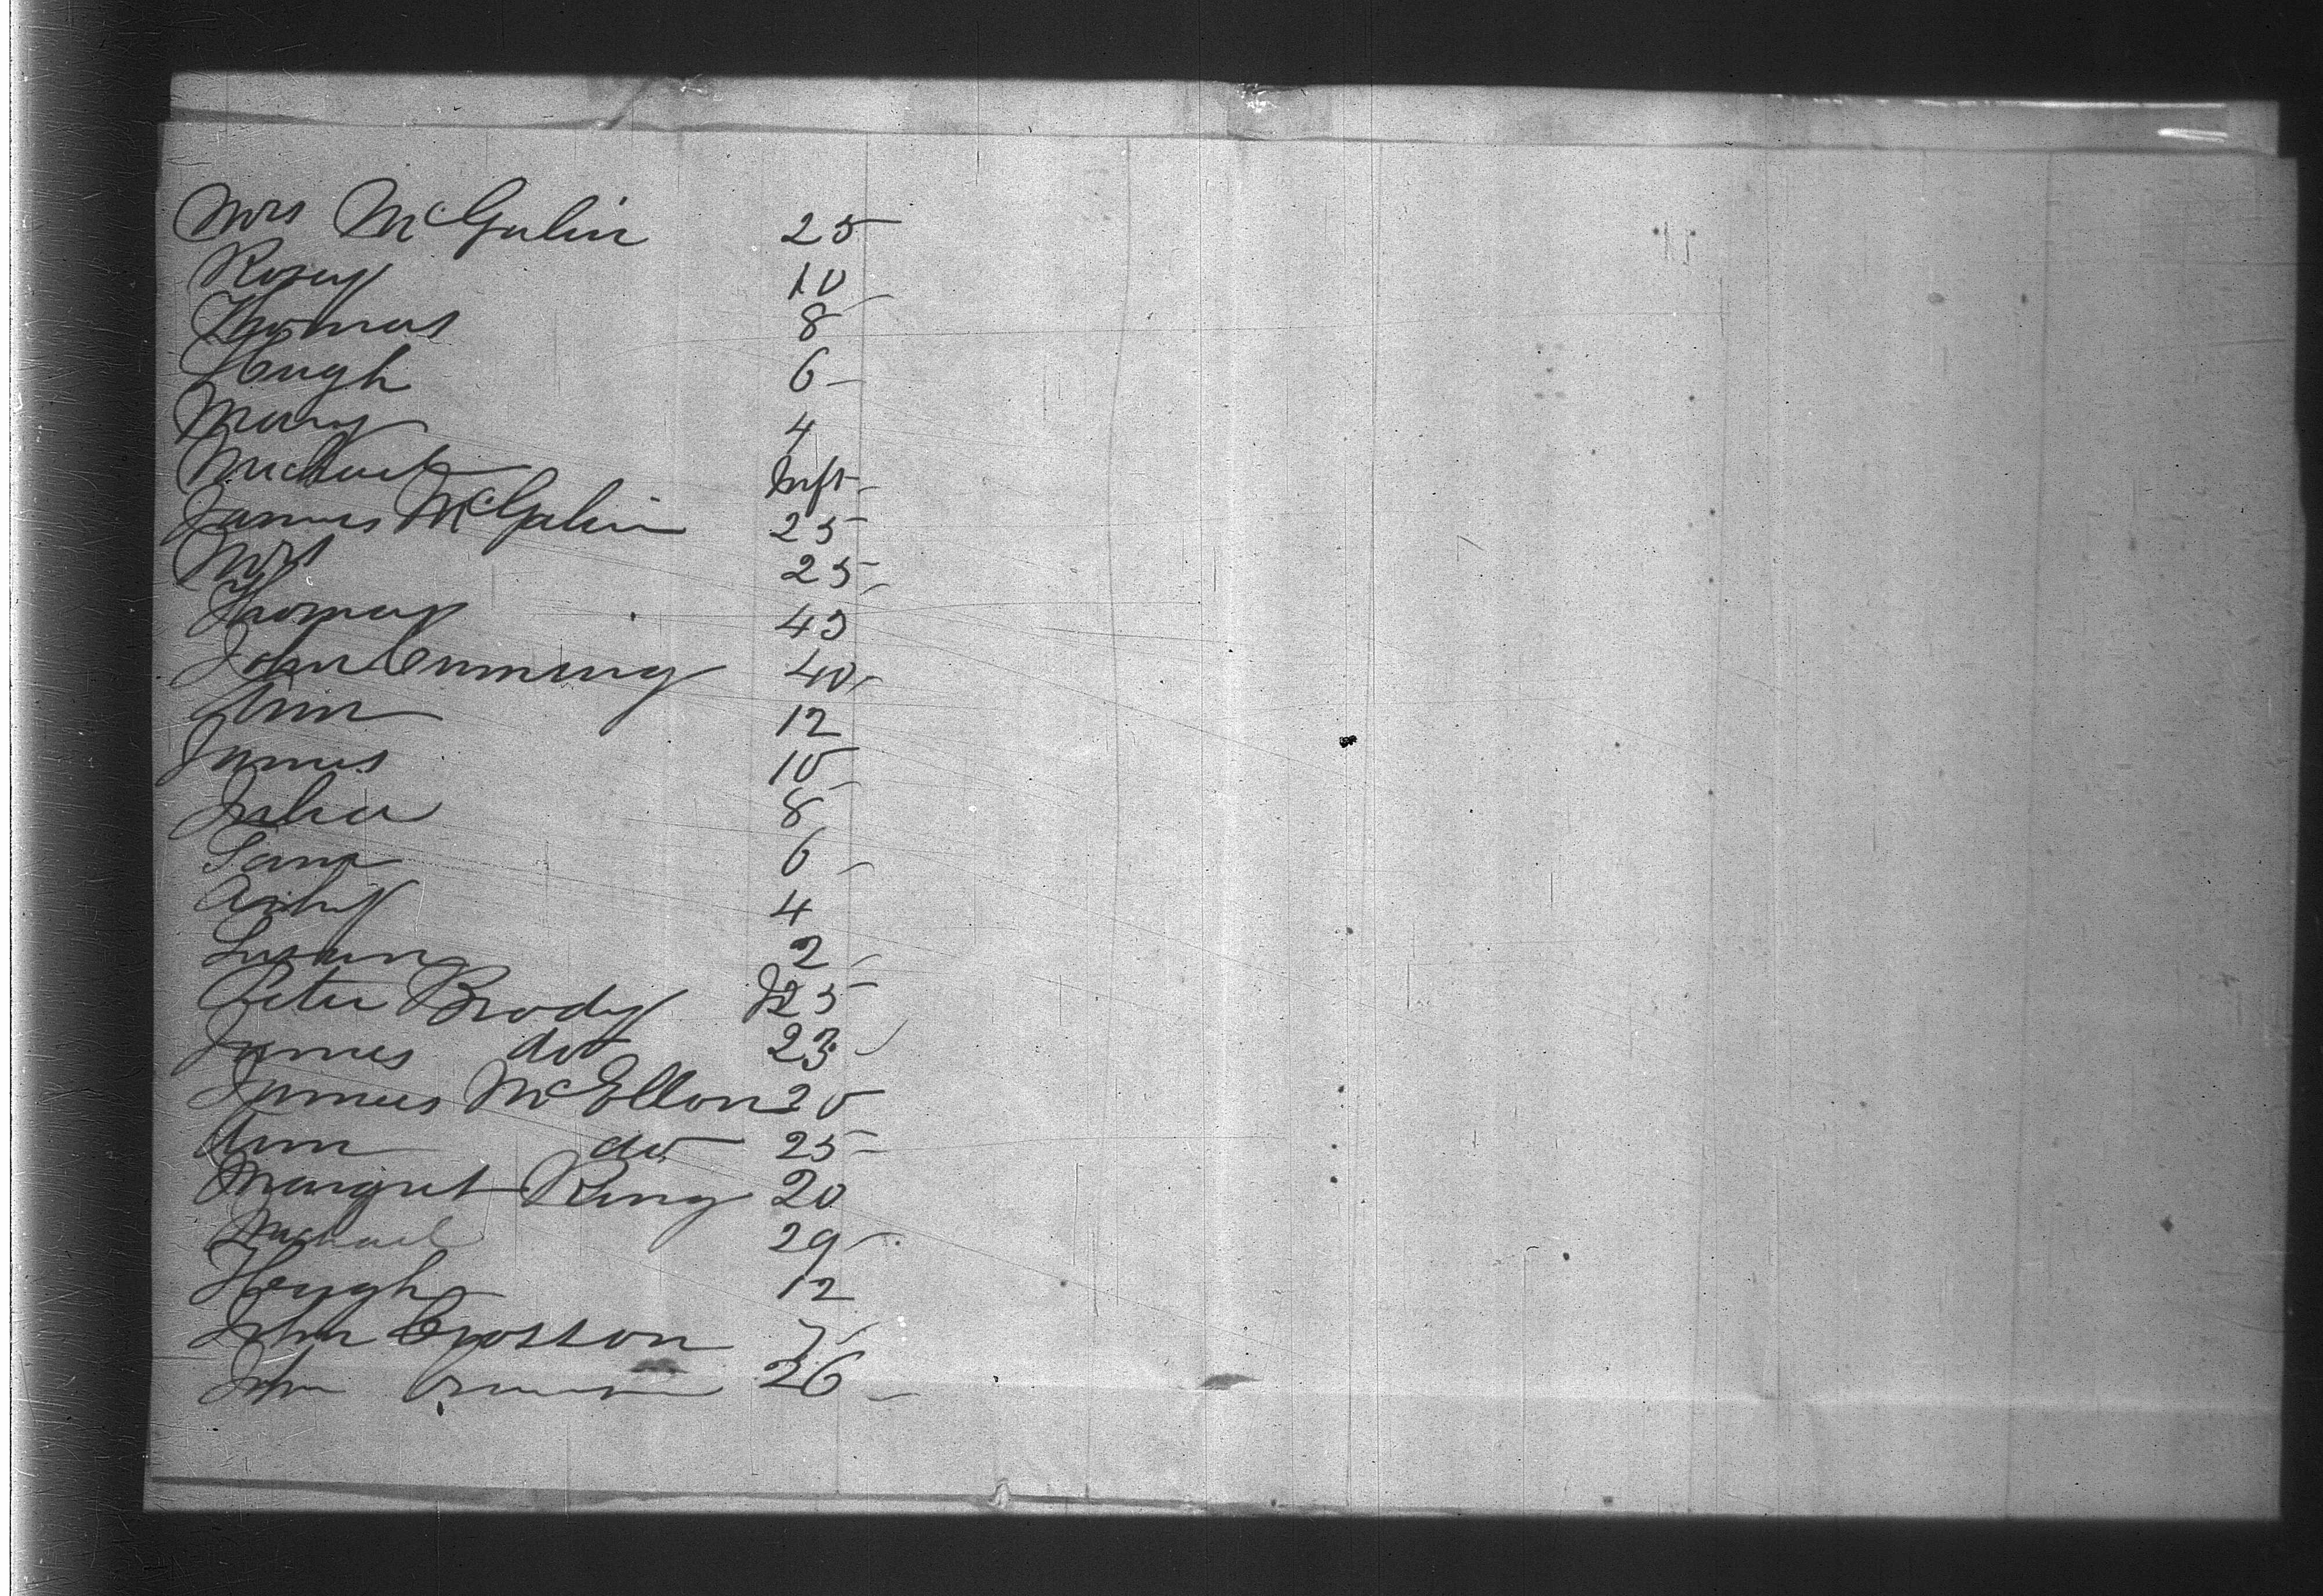 Mrs McGulin 25
Rosey 10
Thomas 8
Hugh 6
Mary 4
Michael Inft
James McGulin 25
Mrs 25
Thomas 45
John Cumming 40
Ann 12
James 10
Julia 8
6
4
Susan 2
Peter Brody 25
James do 23
James McEllon 20
Ann do 25
Margret King 20
Michael 29
Hough 12
John Crosson 7
John 26